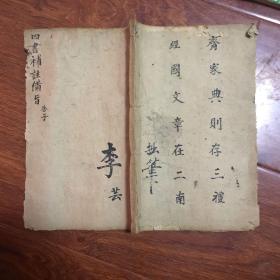 齊家典則存三禮
經國文章在二南
四書補註備旨
李芸